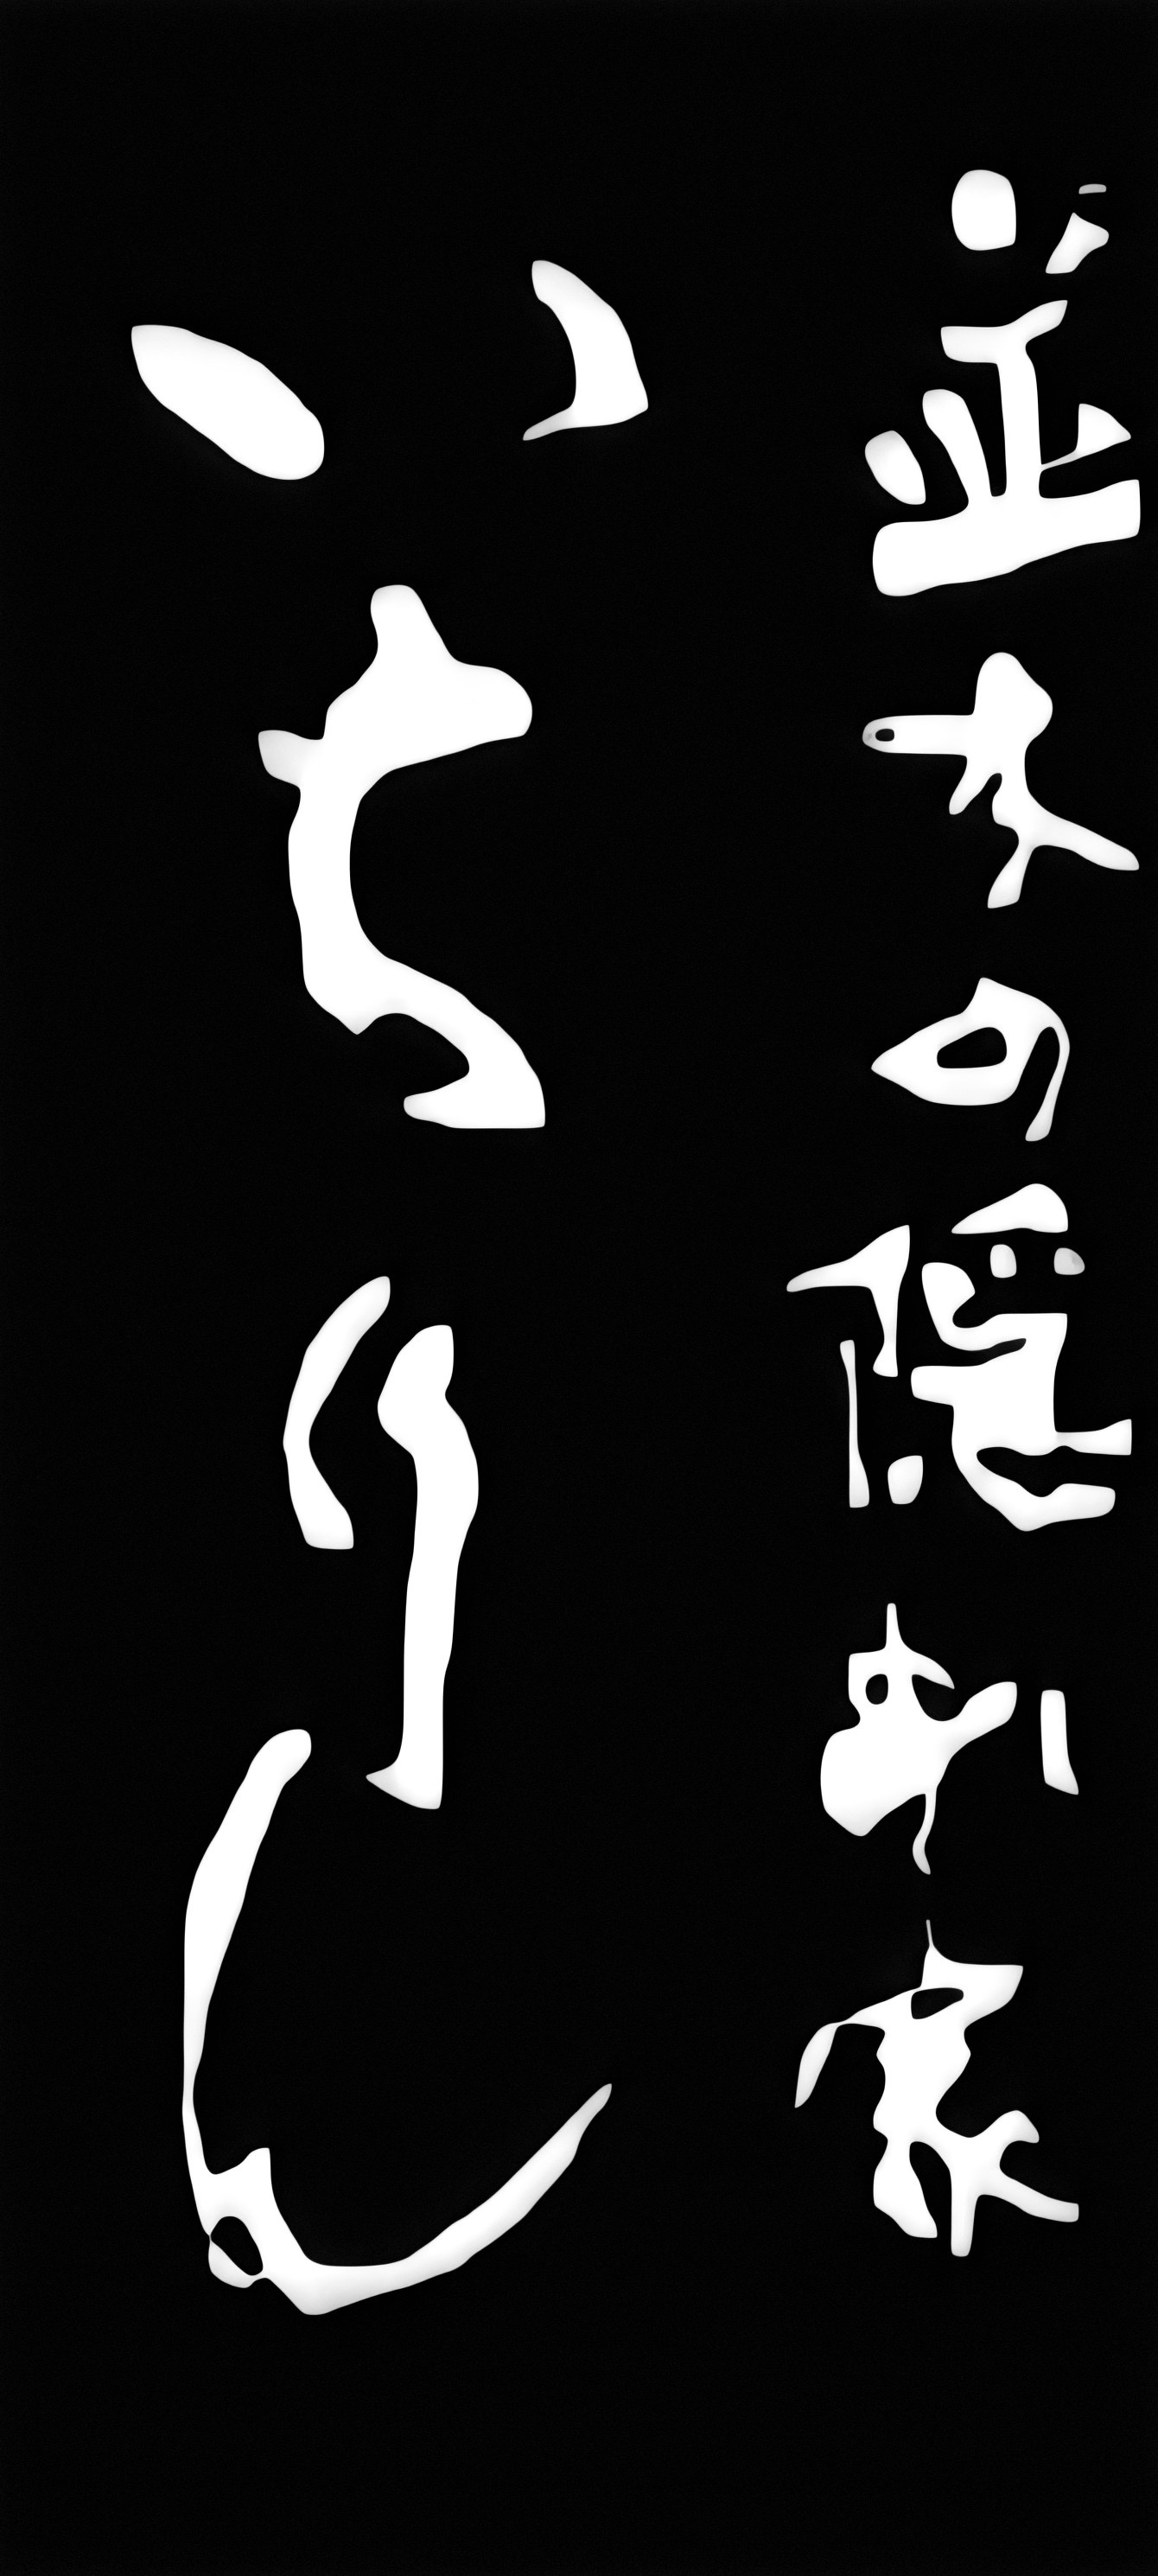 並木の隠れ家
いちりん